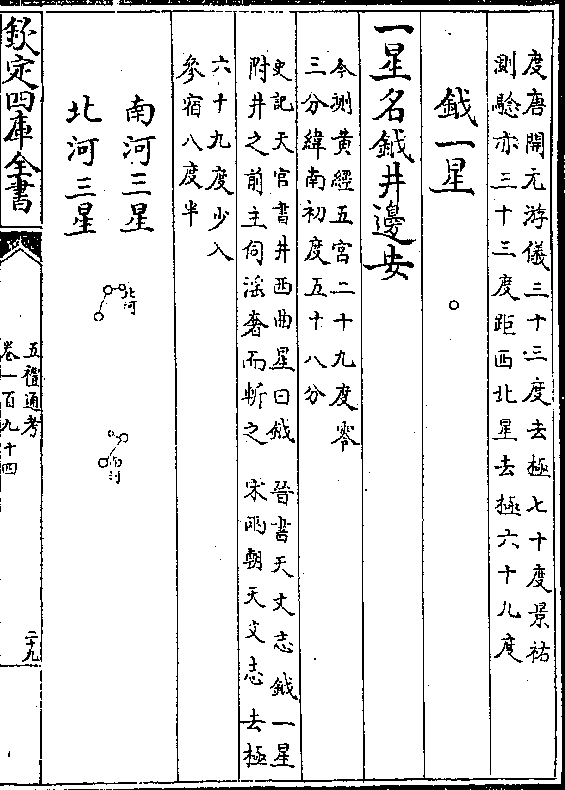 度唐開元游儀三十三度去極七十度景祐
測驗亦三十三度距西北星去極六十九度
鉞一星
一星名鉞井邊安
今測黃經五宮二十九度零
三分緯南初度五十八分
史記天官書井西曲星曰鉞 晉書天文志鉞一星
附井之前主伺淫奢而斬之 宋兩朝天文志去極
六十九度少入
參宿八度半
南河三星
北河三星
北河
南河
欽定四庫全書
五禮通考
卷一百九十四
二十九